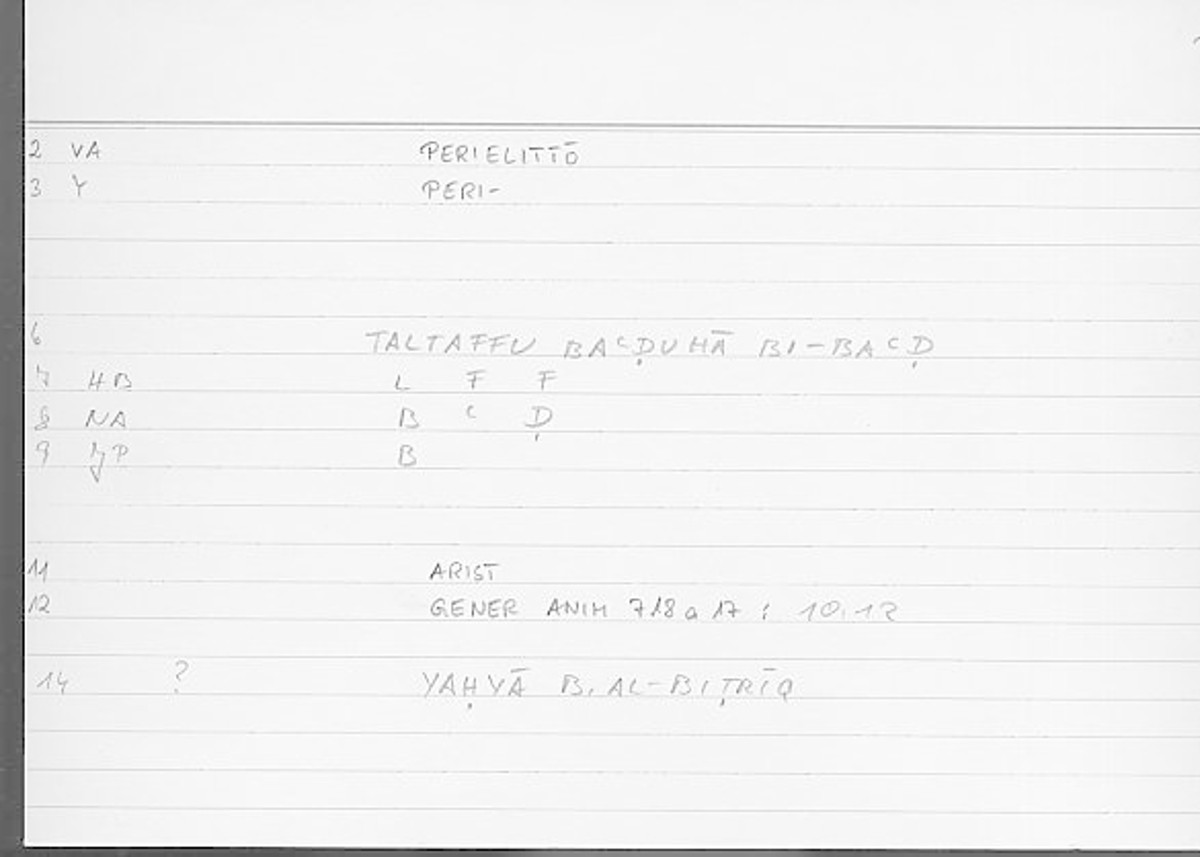 2 VA PERIELITTŌ
3 Y PERI-
6 TALTAFFU BAᶜḌUHĀ BI-BAᶜḌ
7 HB L F F
8 NA B ᶜ Ḍ
9 P B
11 ARIST
12 GENER ANIM 718 a 17 ; 10.12
14 ? YAḤYĀ B. AL-BIṬRĪQ